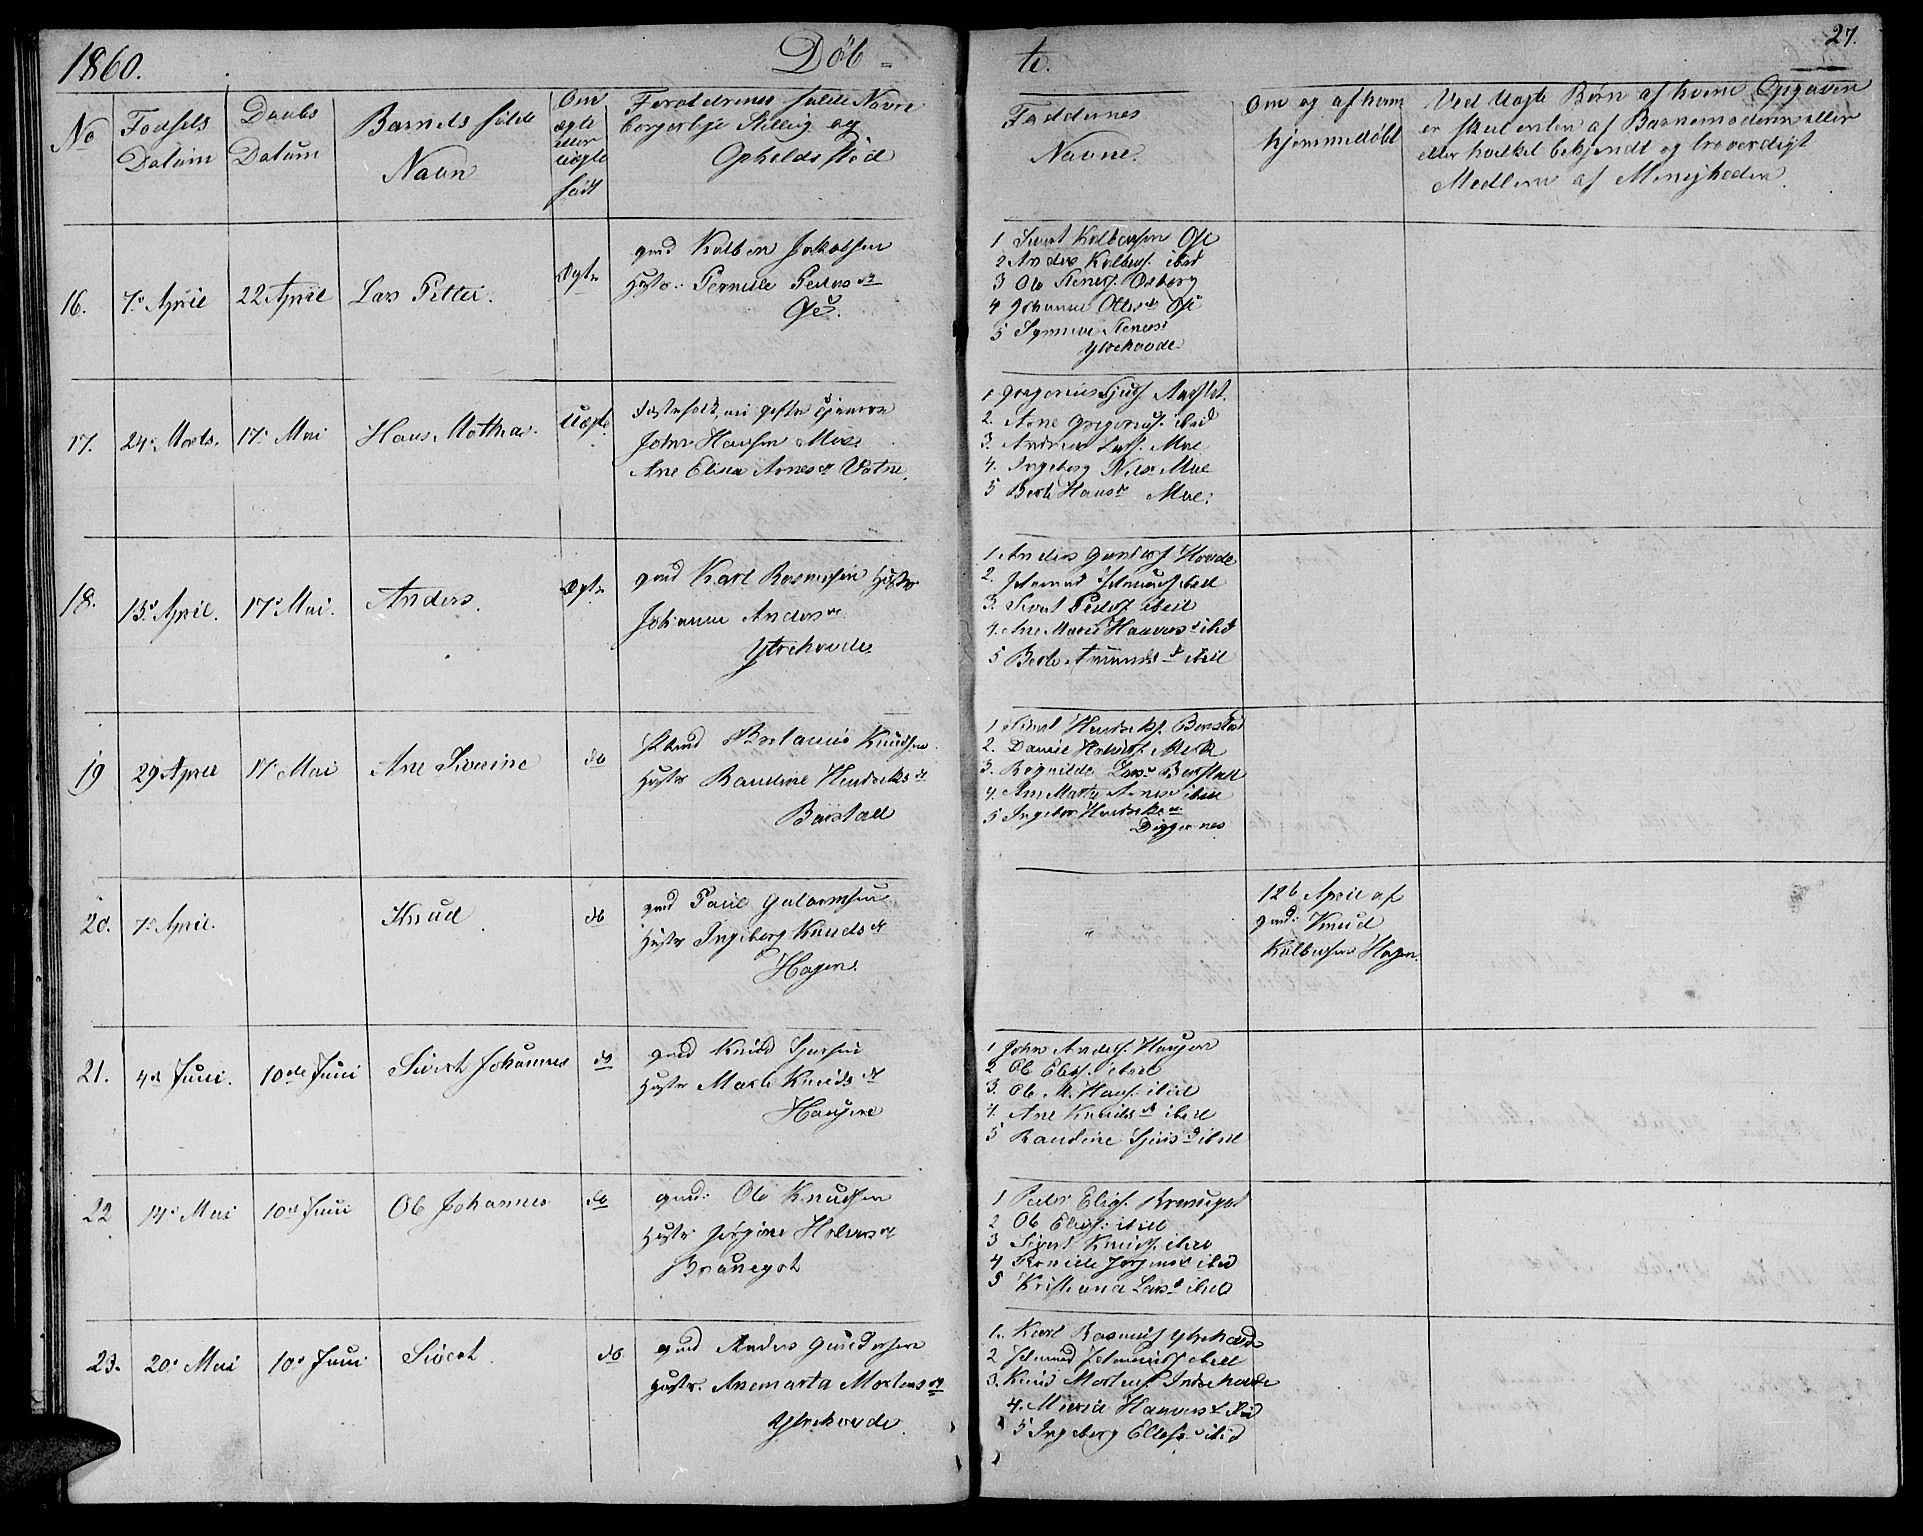 1860.
Döb-
te.
27.
No
Fødsels Datum
Daabs Datum
Barnets fulde Navn
Om ægte eller uægte født
Foreldrenes fulde Navne borgerlige Stilling og Opholdssted
Faddernes Navne.
Om og af hvem hjemmedöbt
Ved uægte Børn af hvem Opgaven er skeet enten af Barnemoderen eller eller hvilket bekjendt og troverdigt Medlem af Menigheden.
16.
7de April
22 April
Lars Petter.
Ægte
gmd Kolben Jakobsen
Hustr: Pernille Peders dt
Ose.
1 Sivert Kolbensen Ose
2 Anders Kolbens. ibid
3 Ole Steners. Osberg
4 Johanne Olles dt Ose
5 Synneve Steners
Ytrehovde.
17.
24de Marts.
17de Mai
Hans Mathias.
Uægte
John Hansen Moe
Ane Elisa Arnes dt Vatne.
2. Arne Gregorius. ibid
3. Andreas Lars. Moe
4. Ingeborg Nils dt Moe
5 Berte Hans dt Moe.
18.
13de April.
17de Mai.
Anders.
Ægte
gmd Karl Rasmusen Hustr
Johanne Anders dt
Ytrehovde
1. Anders Gunders. Hovde
3. Sivert Peders. ibid
4. Ane Marie Haavers dt ibid
5 Berte Amunds dt ibid
19
29 April
17de Mai
Ane Severine
do
Knudsen
Hustr Raudine Hendriks dt
Barstad
1. Sivert Hendriks. Barstad
3. Ragnilde Lars dt Barstad
4. Ane Marta Arnes dt ibid
5 Ingebor Hendriks dt
20.
7de April.
Knud
do
gmd Paul Gutormsen
Hustr Ingeborg Knuds dt
Hagen.
"
12te April af
gmd: Knud
Kolbensen Hagen.
21.
4de Juni.
10de Juni
Sivert Johannes
do
gmd Knud Sjursen
Hustr Marte Knuds dt
Haugene
1 John Anders. Haugene
2 Ole Elias. ibid
3. Ole M. Hans. ibid
4. Ane Knuds dt ibid
5 Raudine Sjurs dt ibid
22
14de Mai
10de Juni
Ole Johannes
do
gmd: Ole Knudsen
Hustr Jörgine Halvers dt
Braunegot
1 Peder Elias. Braunegot
2 Ole Elias. ibid
3 Sivert Knuds. ibid
4 Pernille Jørgens dt ibid
5 Kristiana Lars dt ibid
23.
20de Mai
10de Juni
Sivert.
do
gmd Anders Gundersen
Hustr. Anemarta Mortens dt
Ytrehovde.
1. Karl Rasmus. Ytrehovde
3. Knud Mortens. Indrehovde
4. Maria Haavers dt ibid
5 Ingeborg Ellefs dt ibid